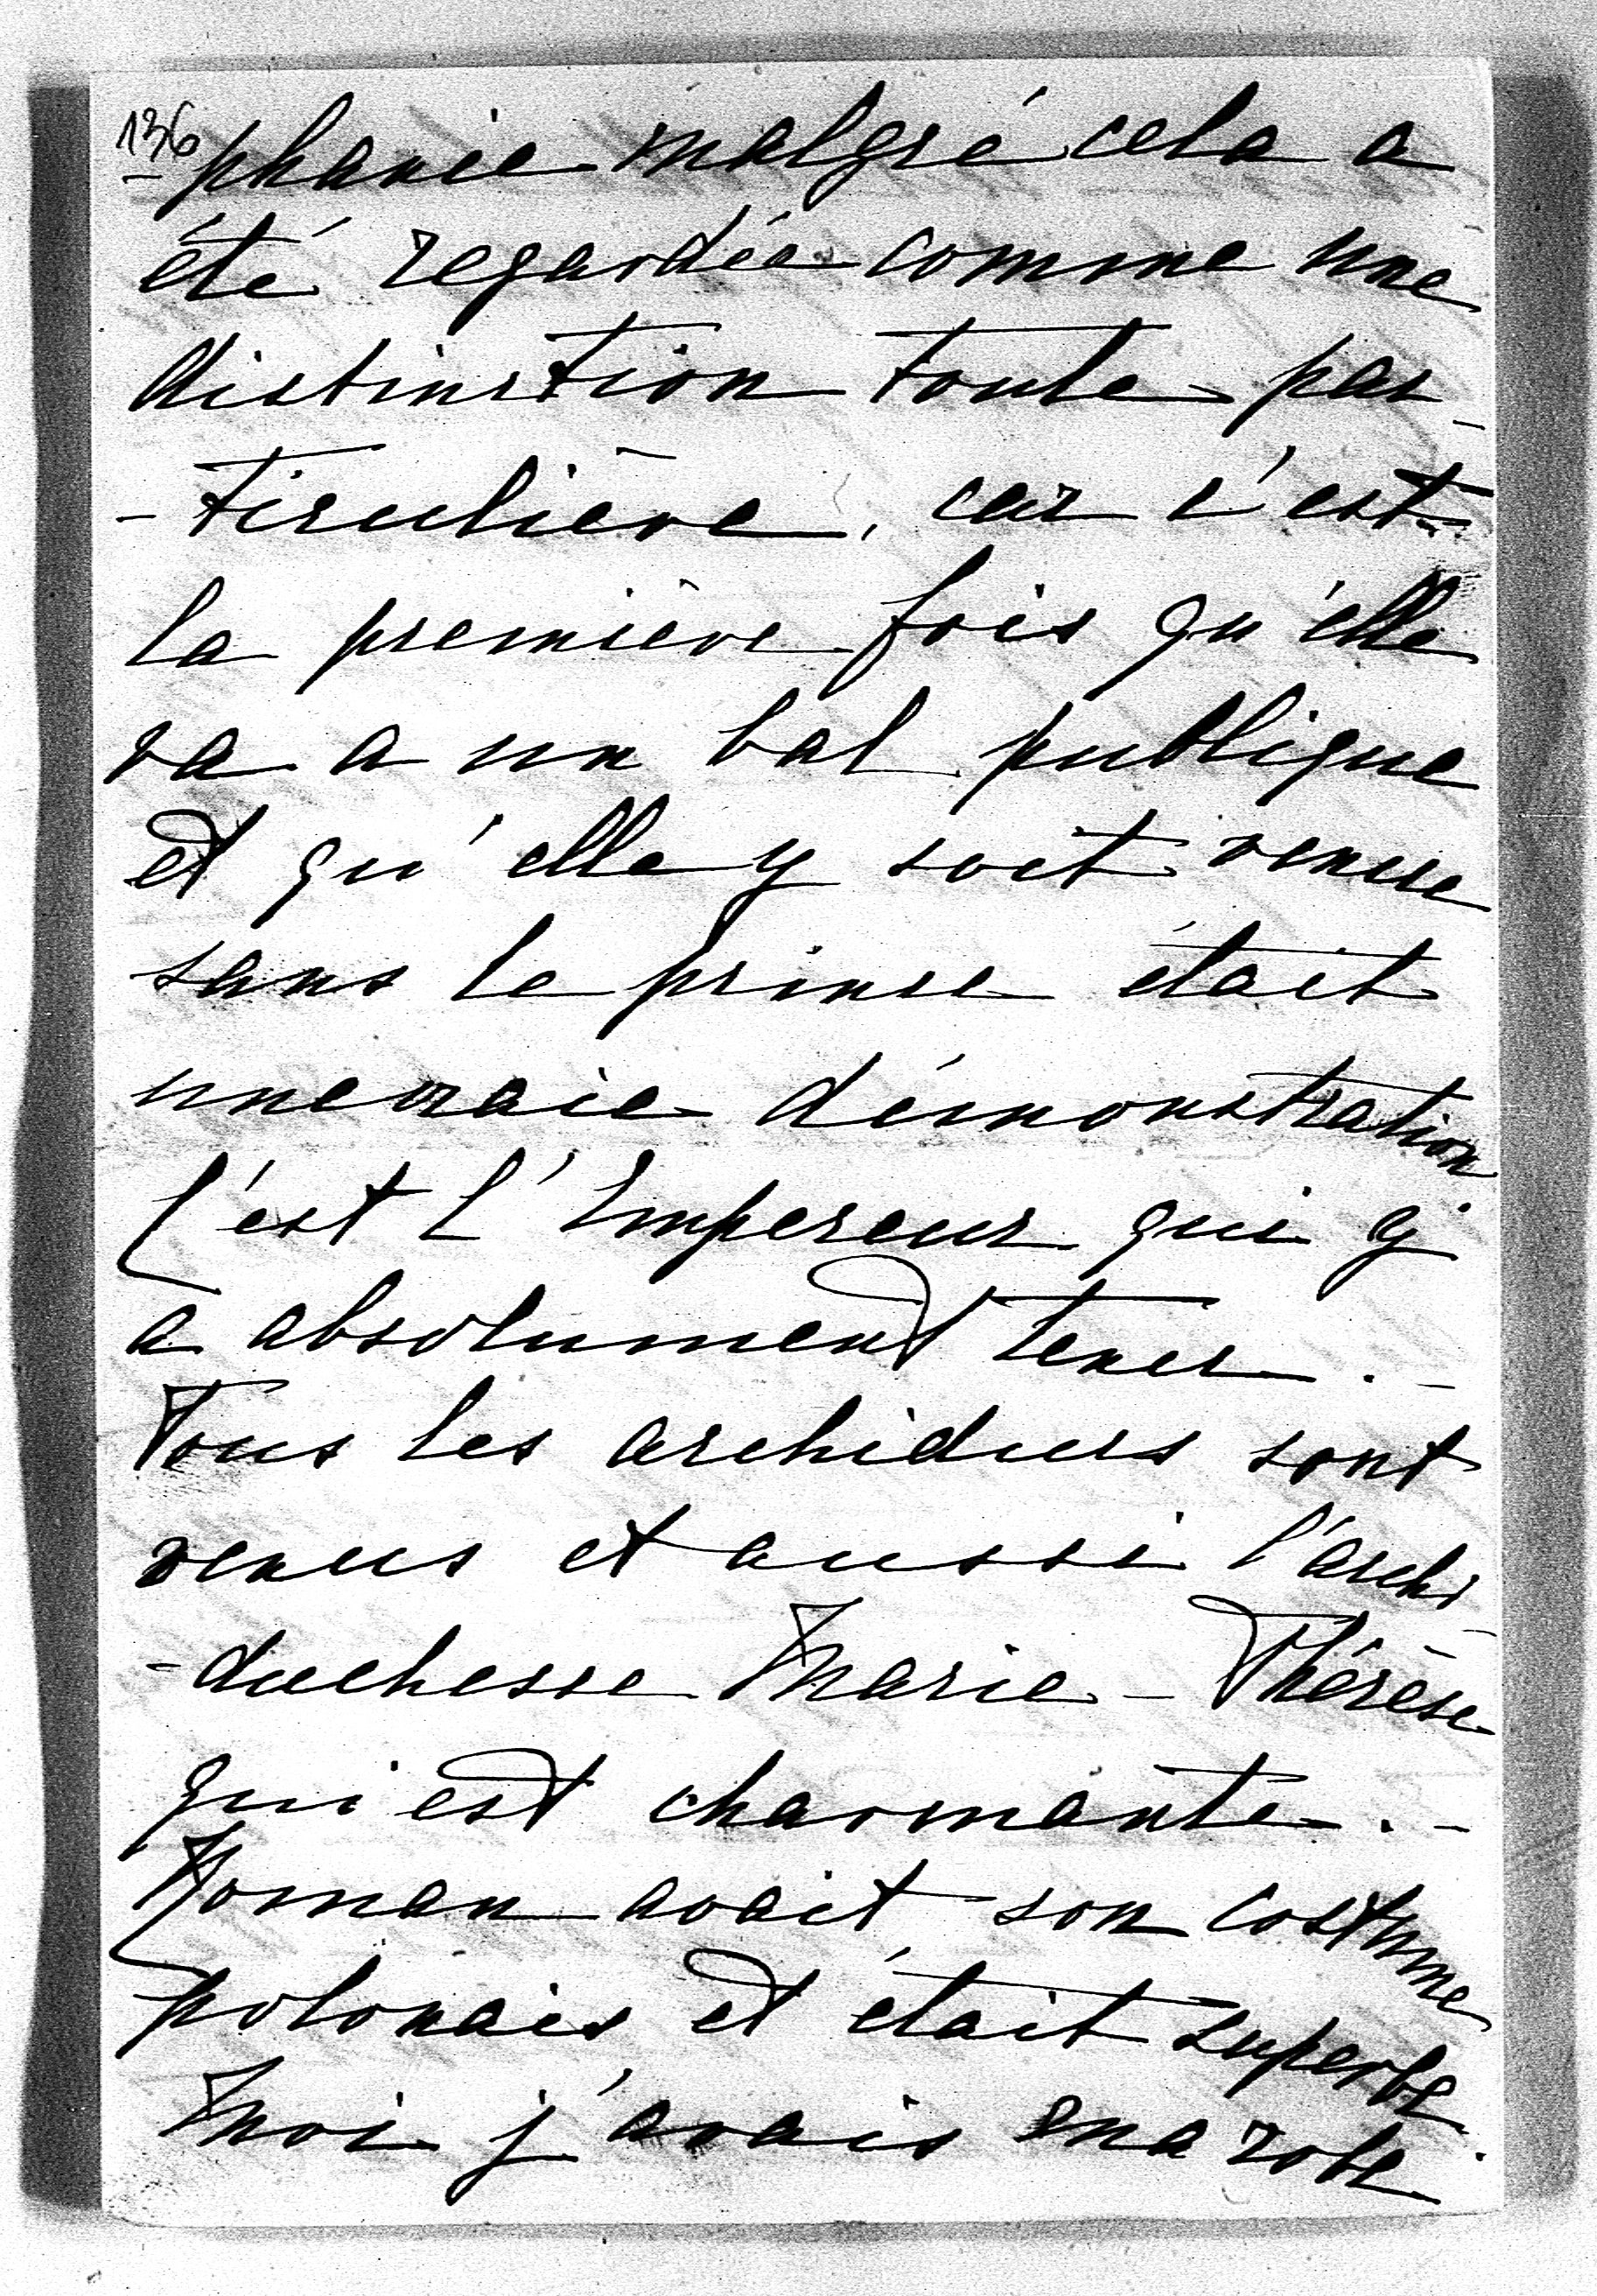 136
-phanie malgré cela a
été regardée comme une
distinction toute par-
-ticulière, car c'est
la première fois qu'elle
va a un bal publique
et qu'elle y soit venue
sans le prince était
une vraie démonstration
C'est l'Empereur qui y
a absolument tenu. -
Tous les archiducs sont
venus et aussi l'archi-
-duchesse Marie-Thérèse
qui est charmante. -
Roman avait son costume
polonais et était superbe.
Moi j'avais ma robe